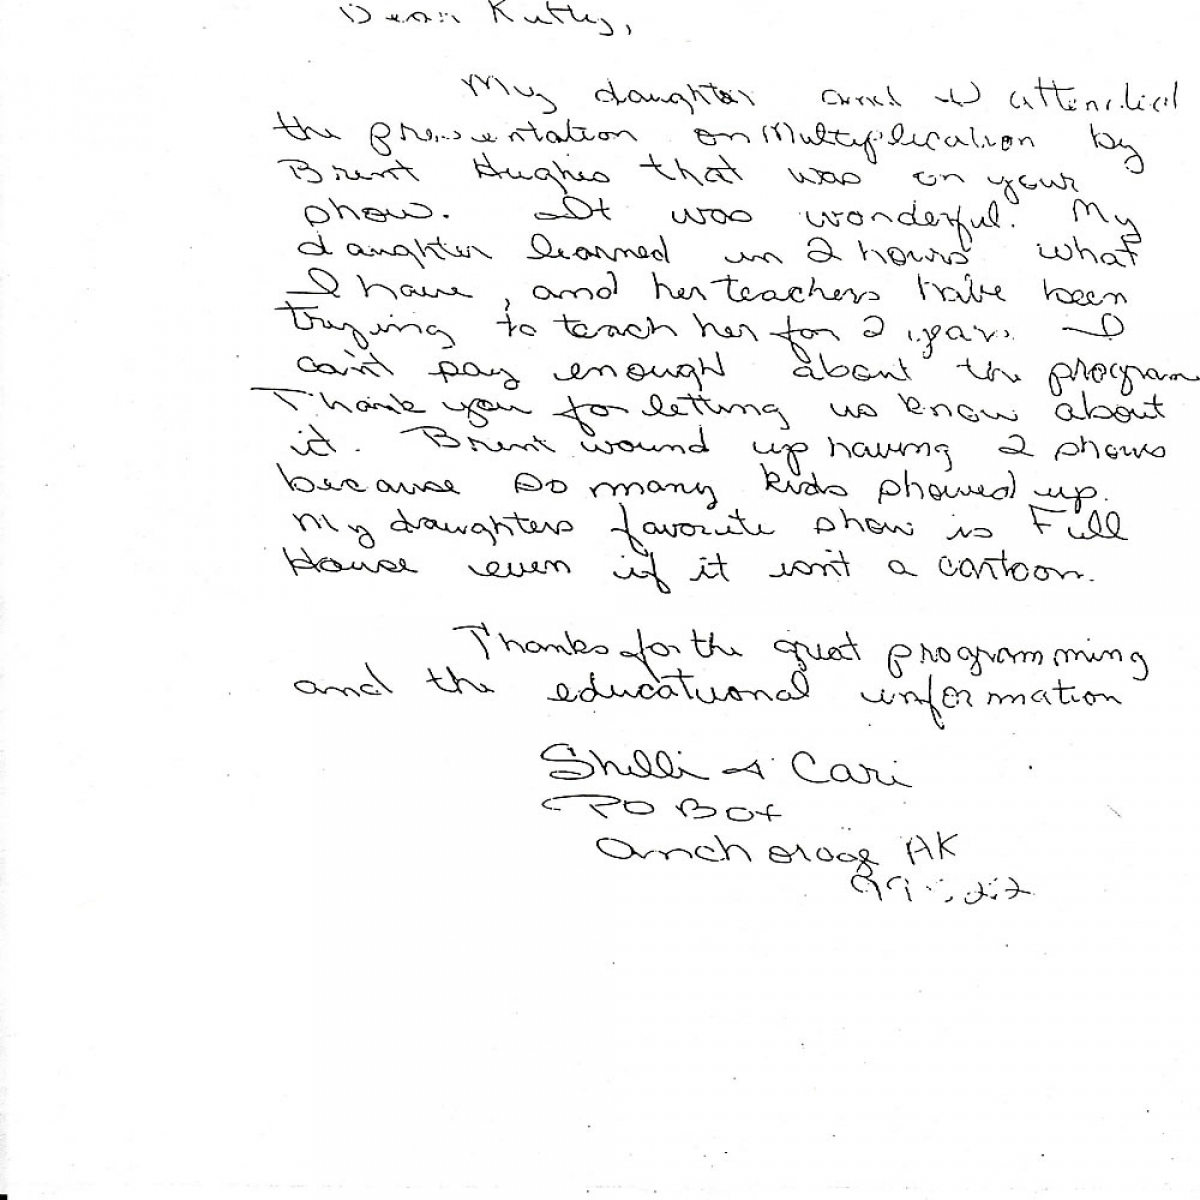 Dear Kathy,
My daughter and I attended
the presentation on Multiplication by
Brent Hughes that was on your
show. It was wonderful. My
daughter learned in 2 hours what
I have, and her teachers have been
trying to teach her for 2 years. I
can't say enough about the program
Thank you for letting us know about
it. Brent wound up having 2 shows
because so many kids showed up.
My daughters favorite show is Full
House even if it isn't a cartoon.
Thanks for the great programming
and the educational information
Shelli & Cari
PO Box
Anchorage AK